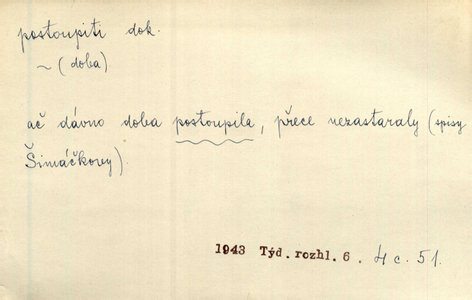 postoupiti dok.
~ (doba)
ač dávno doba postoupila, přece nezastaraly (spisy
Šimáčkovy).
1943 Týd. rozhl. 6. 4 c. 51.